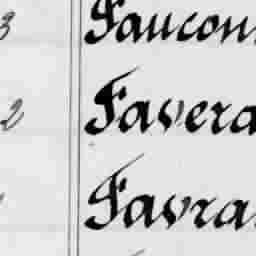 3 Faucon
2 Favera
Favra